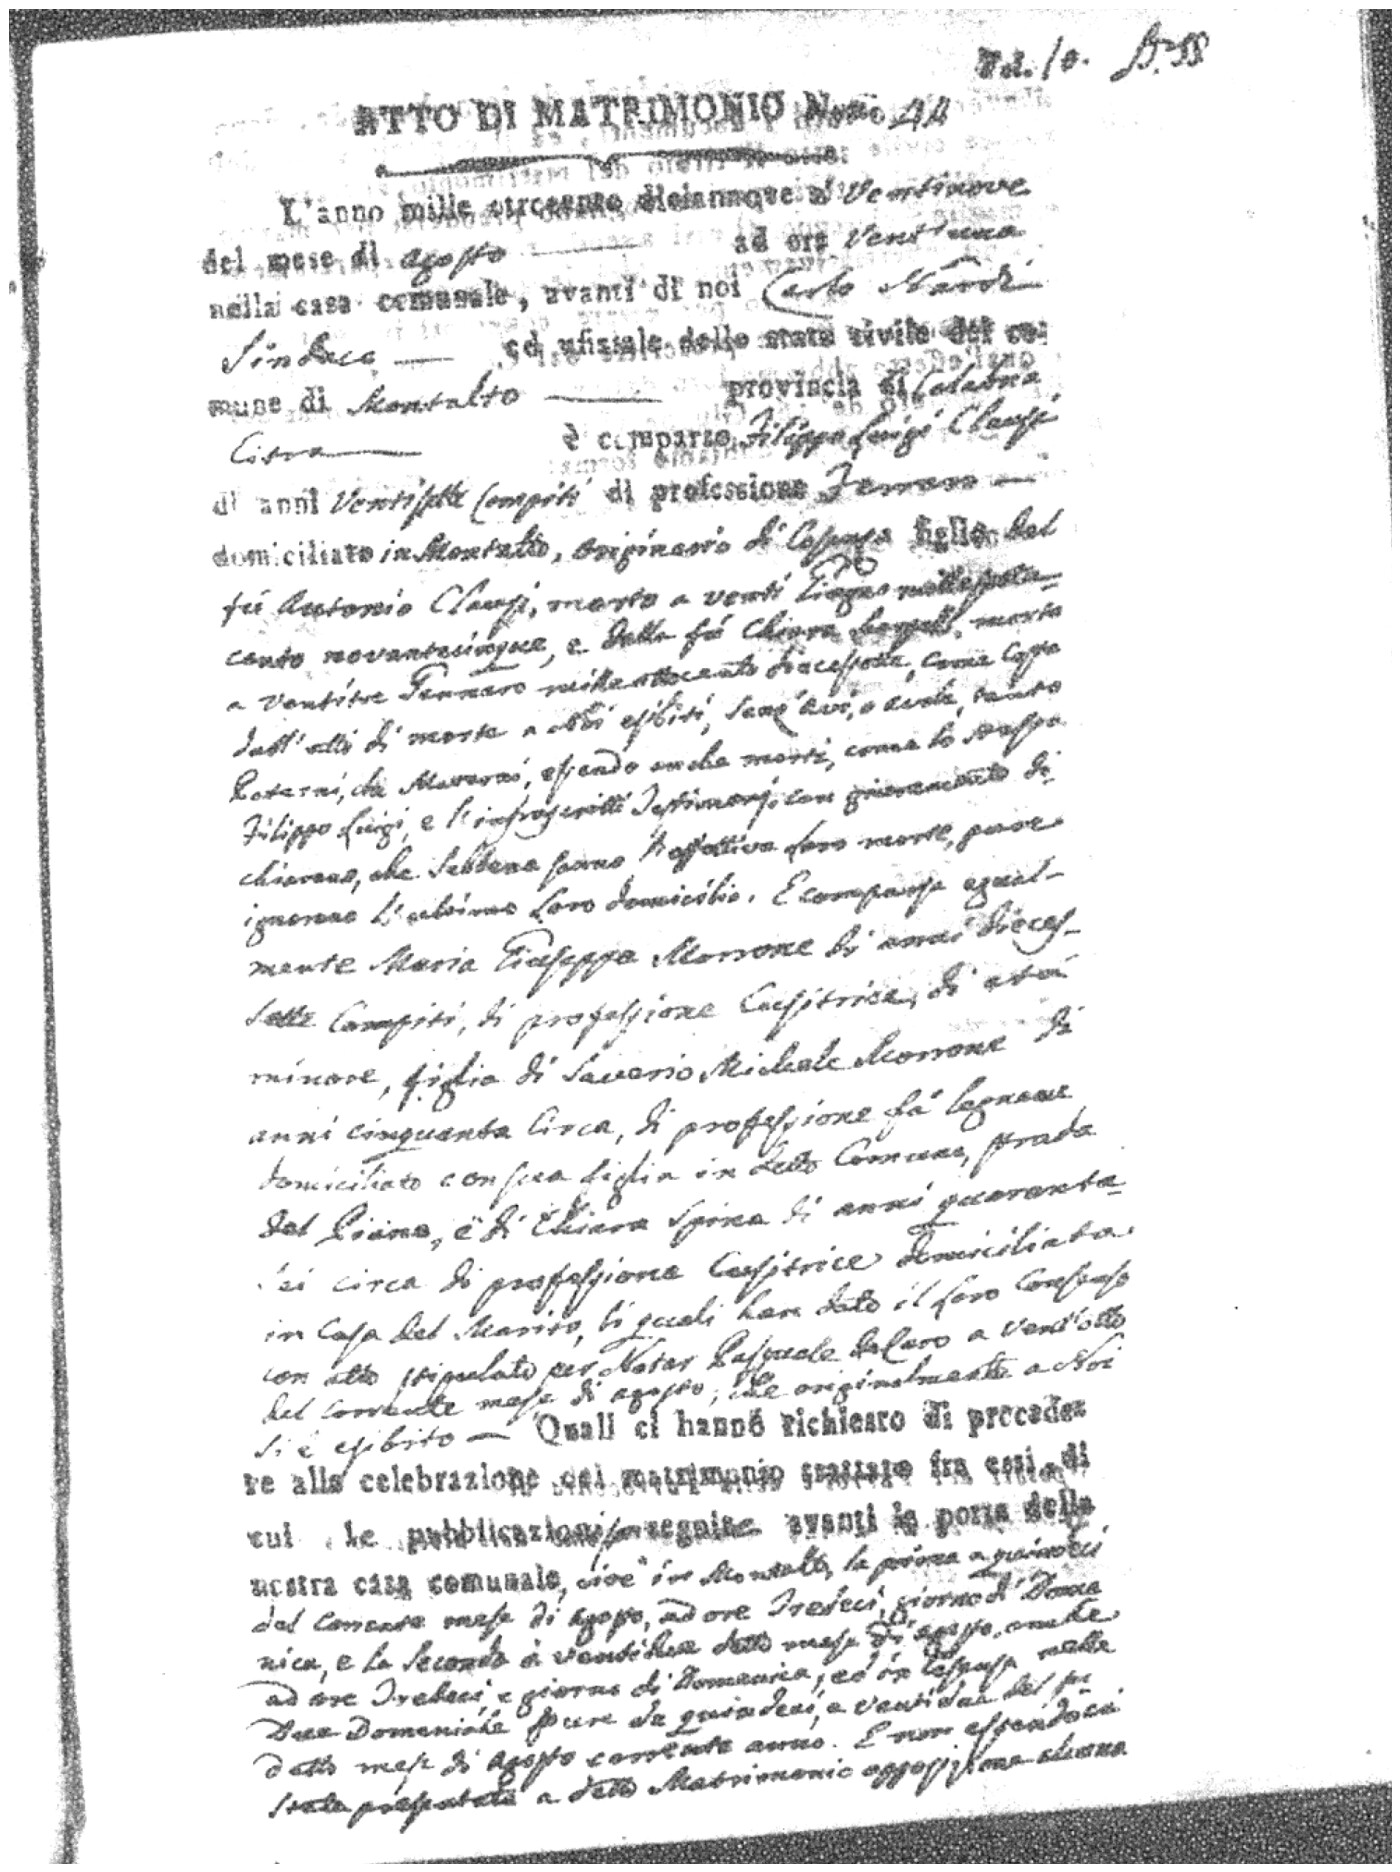 Fol. 10.
ATTO DI MATRIMONIO Num.o 44
L'anno mille ottocento diciannove a' Ventinove
del mese di Agosto ad ore Vent'una
nella casa comunale, avanti di noi Carlo Nardi
Sindaco ed ufiziale dello stato civile del co-
mune di Montalto provincia di Calabria
Citra è comparso Filippo Luigi Clausi
di anni Ventisette Compiti di professione Ferraro
domiciliato in Montalto, originario di Cosenza figlio del
fù Antonio Clausi, morto a venti Giugno mille sette
cento novantacinque, e della fù Chiara morta
a ventitre Gennaro mille ottocento diecessette, come copia
dall'atti di morte a Noi esibiti, senz'Avi, o Avole, tanto
Paterni, che Materni, essendo anche morti, come lo stesso
Filippo Luigi, e l'infrascritti Testimonj con giuramento di-
chiarano, che sebbene sanno l'effettiva loro morte, pure
ignorano l'ultimo loro domicilio. E comparsa egual-
mente Maria Giuseppa Morrone di anni dieces-
sette Compiti, di professione Cusitrice, di età
minore, figlia di Saverio Michele Morrone di
anni cinquanta Circa, di professione fa' legname
domiciliato con sua figlia in detto Comune, strada
del Piano, e di Chiara Spina di anni quaranta-
sei circa di professione Cusitrice domiciliata
in Casa del Marito, li quali han dato il loro Consenso
con atto stipulato per Notar Pasquale de Caro a Vent'otto
del corrente mese di agosto, che originalmente a Noi
si è esibito — Quali ci hanno richiesto di procede-
re alla celebrazione del matrimonio trattato fra essi, di
cui le pubblicazioni son seguite avanti la porta della
nostra casa comunale, cioè in Montalto, la prima a quindeci
del corrente mese di Agosto, ad ore Tredeci, giorno di Dome
nica, e la Seconda a ventidue detto mese di agosto, anche
ad ore Tredeci, e giorno di Domenica, ed in Cosenza nelle
Due Domeniche pure de quindeci, e Ventidue del su
detto mese di Agosto corrente anno. E non essendoci
stata presentata a detto Matrimonio opposizione alcuna